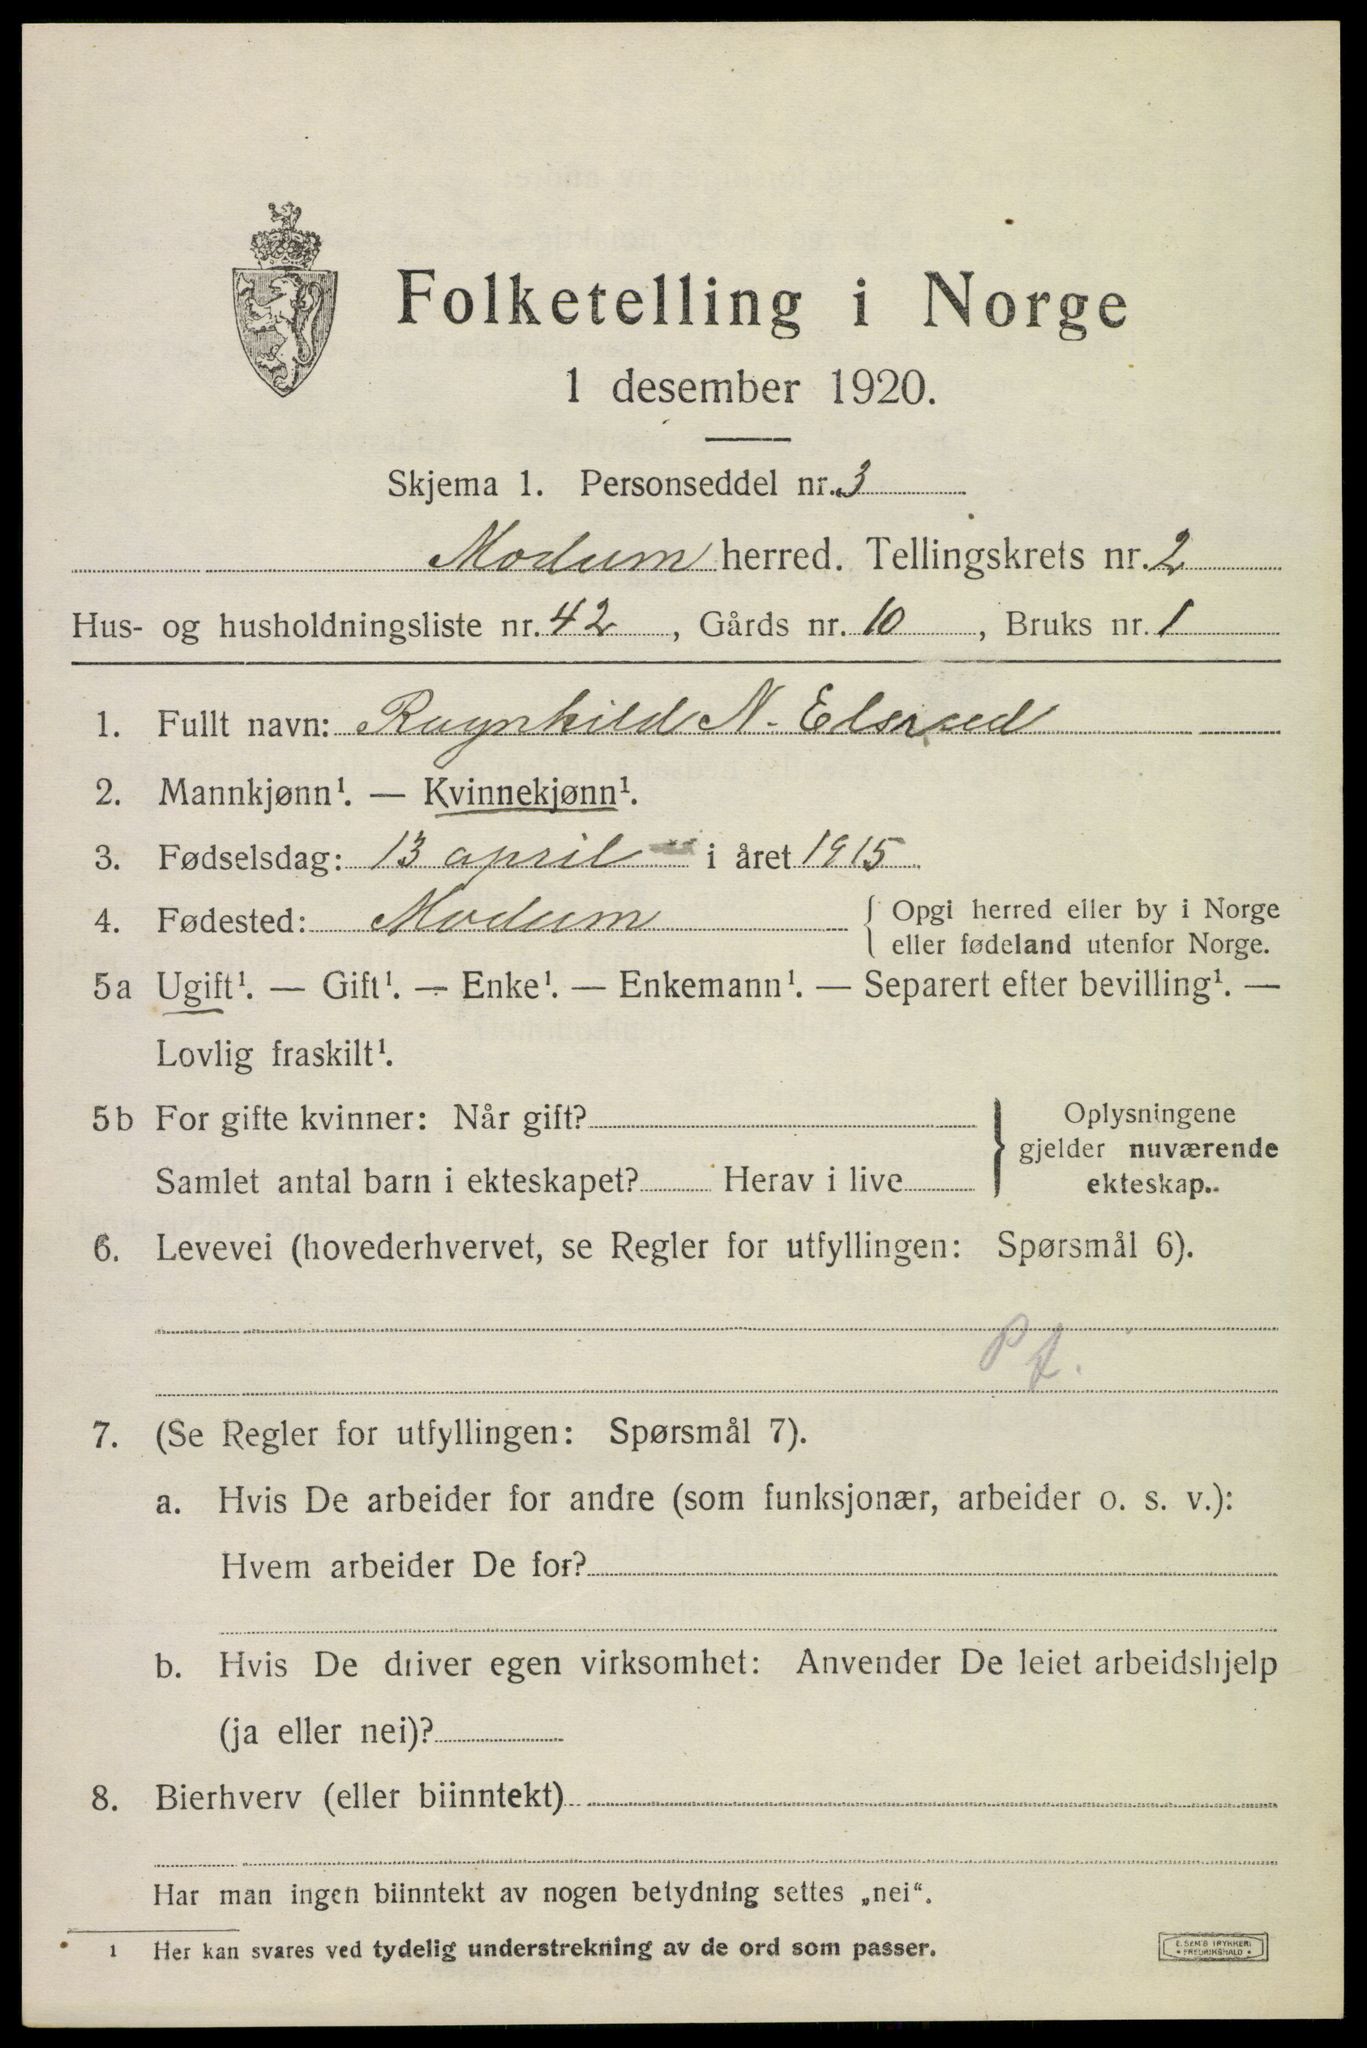 Folketelling i Norge
1 desember 1920.
Skjema 1. Personseddel nr. 3
Modum herred. Tellingskrets nr. 2
Hus- og husholdningsliste nr. 42, Gårds nr. 10, Bruks nr. 1
1. Fullt navn: Ragnhild N. Elsrud
2. Mannkjønn¹. — Kvinnekjønn¹.
3. Fødselsdag: 13 april i året 1915.
4. Fødested: Modum { Opgi herred eller by i Norge
eller fødeland utenfor Norge.
5a Ugift¹. — Gift¹. — Enke¹. — Enkemann¹. — Separert efter bevilling¹. —
Lovlig fraskilt¹.
5b For gifte kvinner: Når gift? } Oplysningene
gjelder nuværende
Samlet antal barn i ekteskapet? Herav i live ekteskap.
6. Levevei (hovederhvervet, se Regler for utfyllingen: Spørsmål 6).
Pf.
7. (Se Regler for utfyllingen: Spørsmål 7).
a. Hvis De arbeider for andre (som funksjonær, arbeider o. s. v.):
Hvem arbeider De for?
b. Hvis De driver egen virksomhet: Anvender De leiet arbeidshjelp
(ja eller nei)?
8. Bierhverv (eller biinntekt)
Har man ingen biinntekt av nogen betydning settes „nei“.
1 Her kan svares ved tydelig understrekning av de ord som passer.
E. SEM'S TRYKKERI
• FREDRIKSHALD •